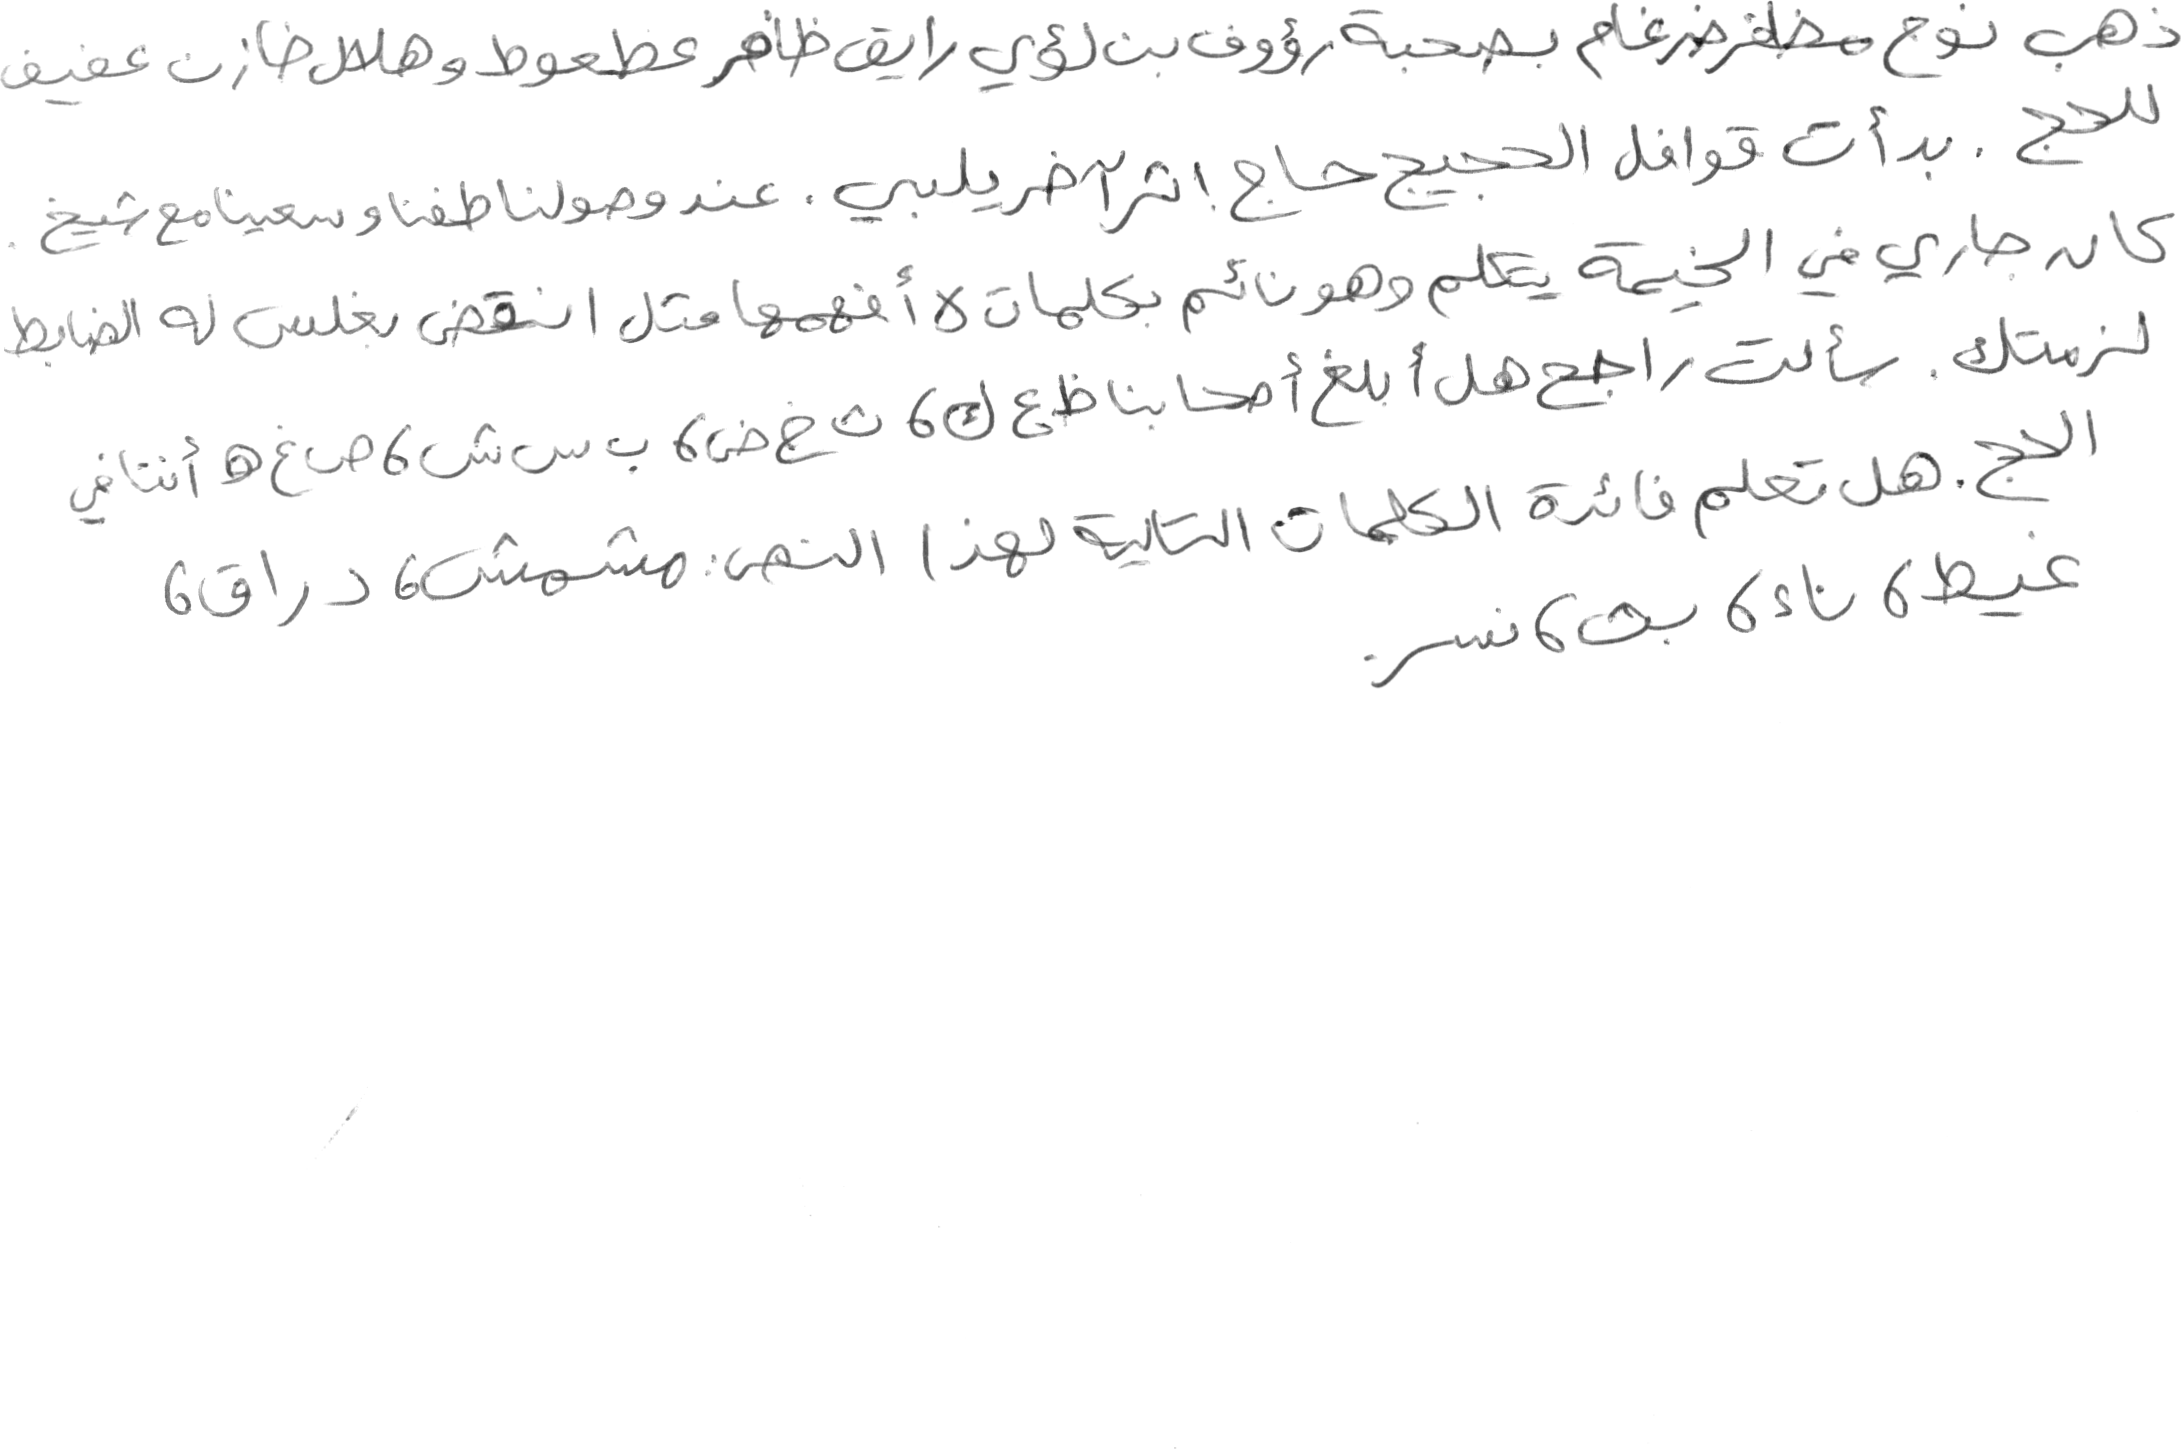 ذهب نوح مظفر ضرغام بصحبة رؤوف بن لؤي رايق ظافر عطعوط وهلال خازن عفيف
للحج . بدأت قوافل الحجيج حاج إثر آخر يلبي . عند وصولنا طفنا وسعينا مع شيخ .
كان جاري في الخيمة يتكلم وهو نائم بكلمات لا أفهمها مثل انقض بغلس له الضابط
لزمتك . سألت راجح هل أبلغ أصحابنا ظ ع ك ، ث ج ض ، ب س ش ، ص غ ه أننا في
الحج . هل تعلم فائدة الكلمات التالية لهذا النص : مشمش ، دراق ،
غيط ، ناء ، بث ، نسر .